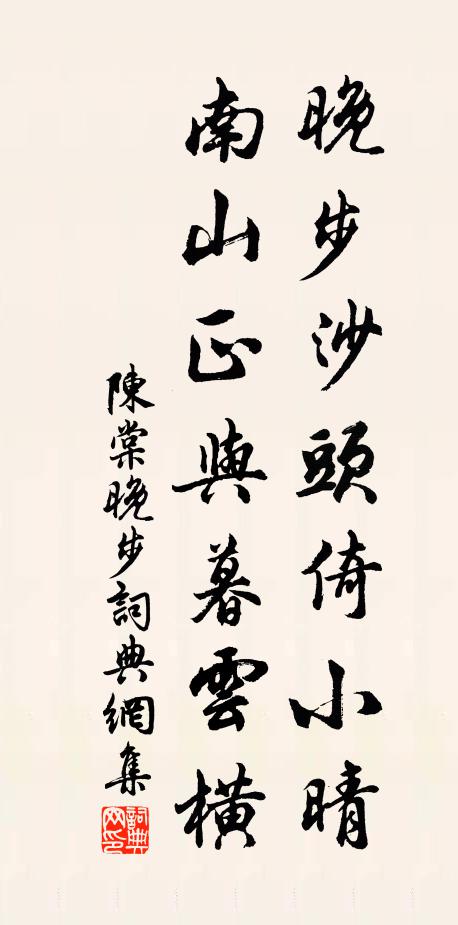 晚步沙頭倚小晴
南山正與暮雲橫
陳棠晚步詞典網集
詞典网印